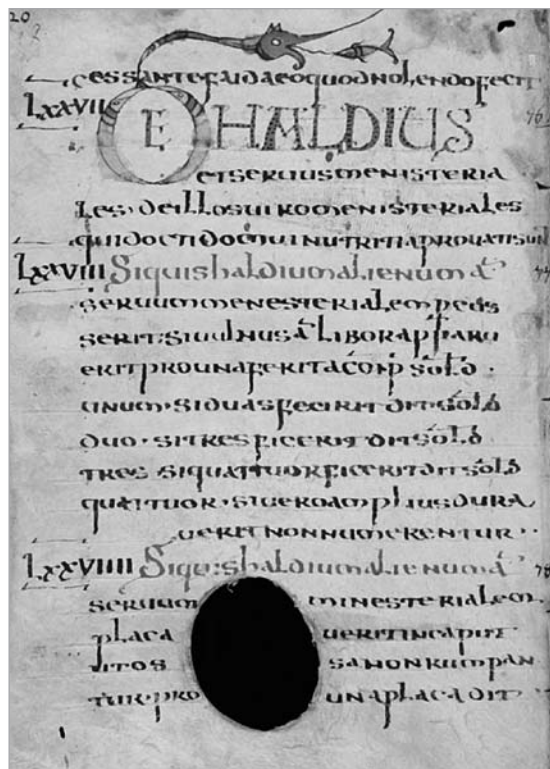 20
cessantefaidaeoquodnolendofecit
LXXVII DE HALDIUS 76
etseruusmenisteria
les, deillosuiromenisteriales
quidoctidomuinutritiaprouatisun
LXXVIII Siquishaldiumalienum a 77
seruummenesterialem
serit:siuulnus a libor
eritprounaferita sold
unum·siduasfecirit dit sold
duo·sitresficerit dit sold
tres siquattuorficeritdit sold
quattuor·siueroampliusdura
ueritnonnumerentur··
LXXVIIII Siquishaldiumalienum a 78
seruum minesterialem
placa ueritincaput
utos sanonrumpan
tur·pro unaplacadit